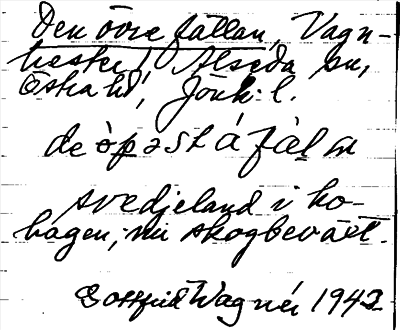 Den övre fällan, Vagn-
hester, Alseda sn,
Östra hd, Jönk. l.
de òpəst á fàlɑ
svedjeland i ko-
hagen, nu skogbeväxt.
Gottfrid Wagnér 1942